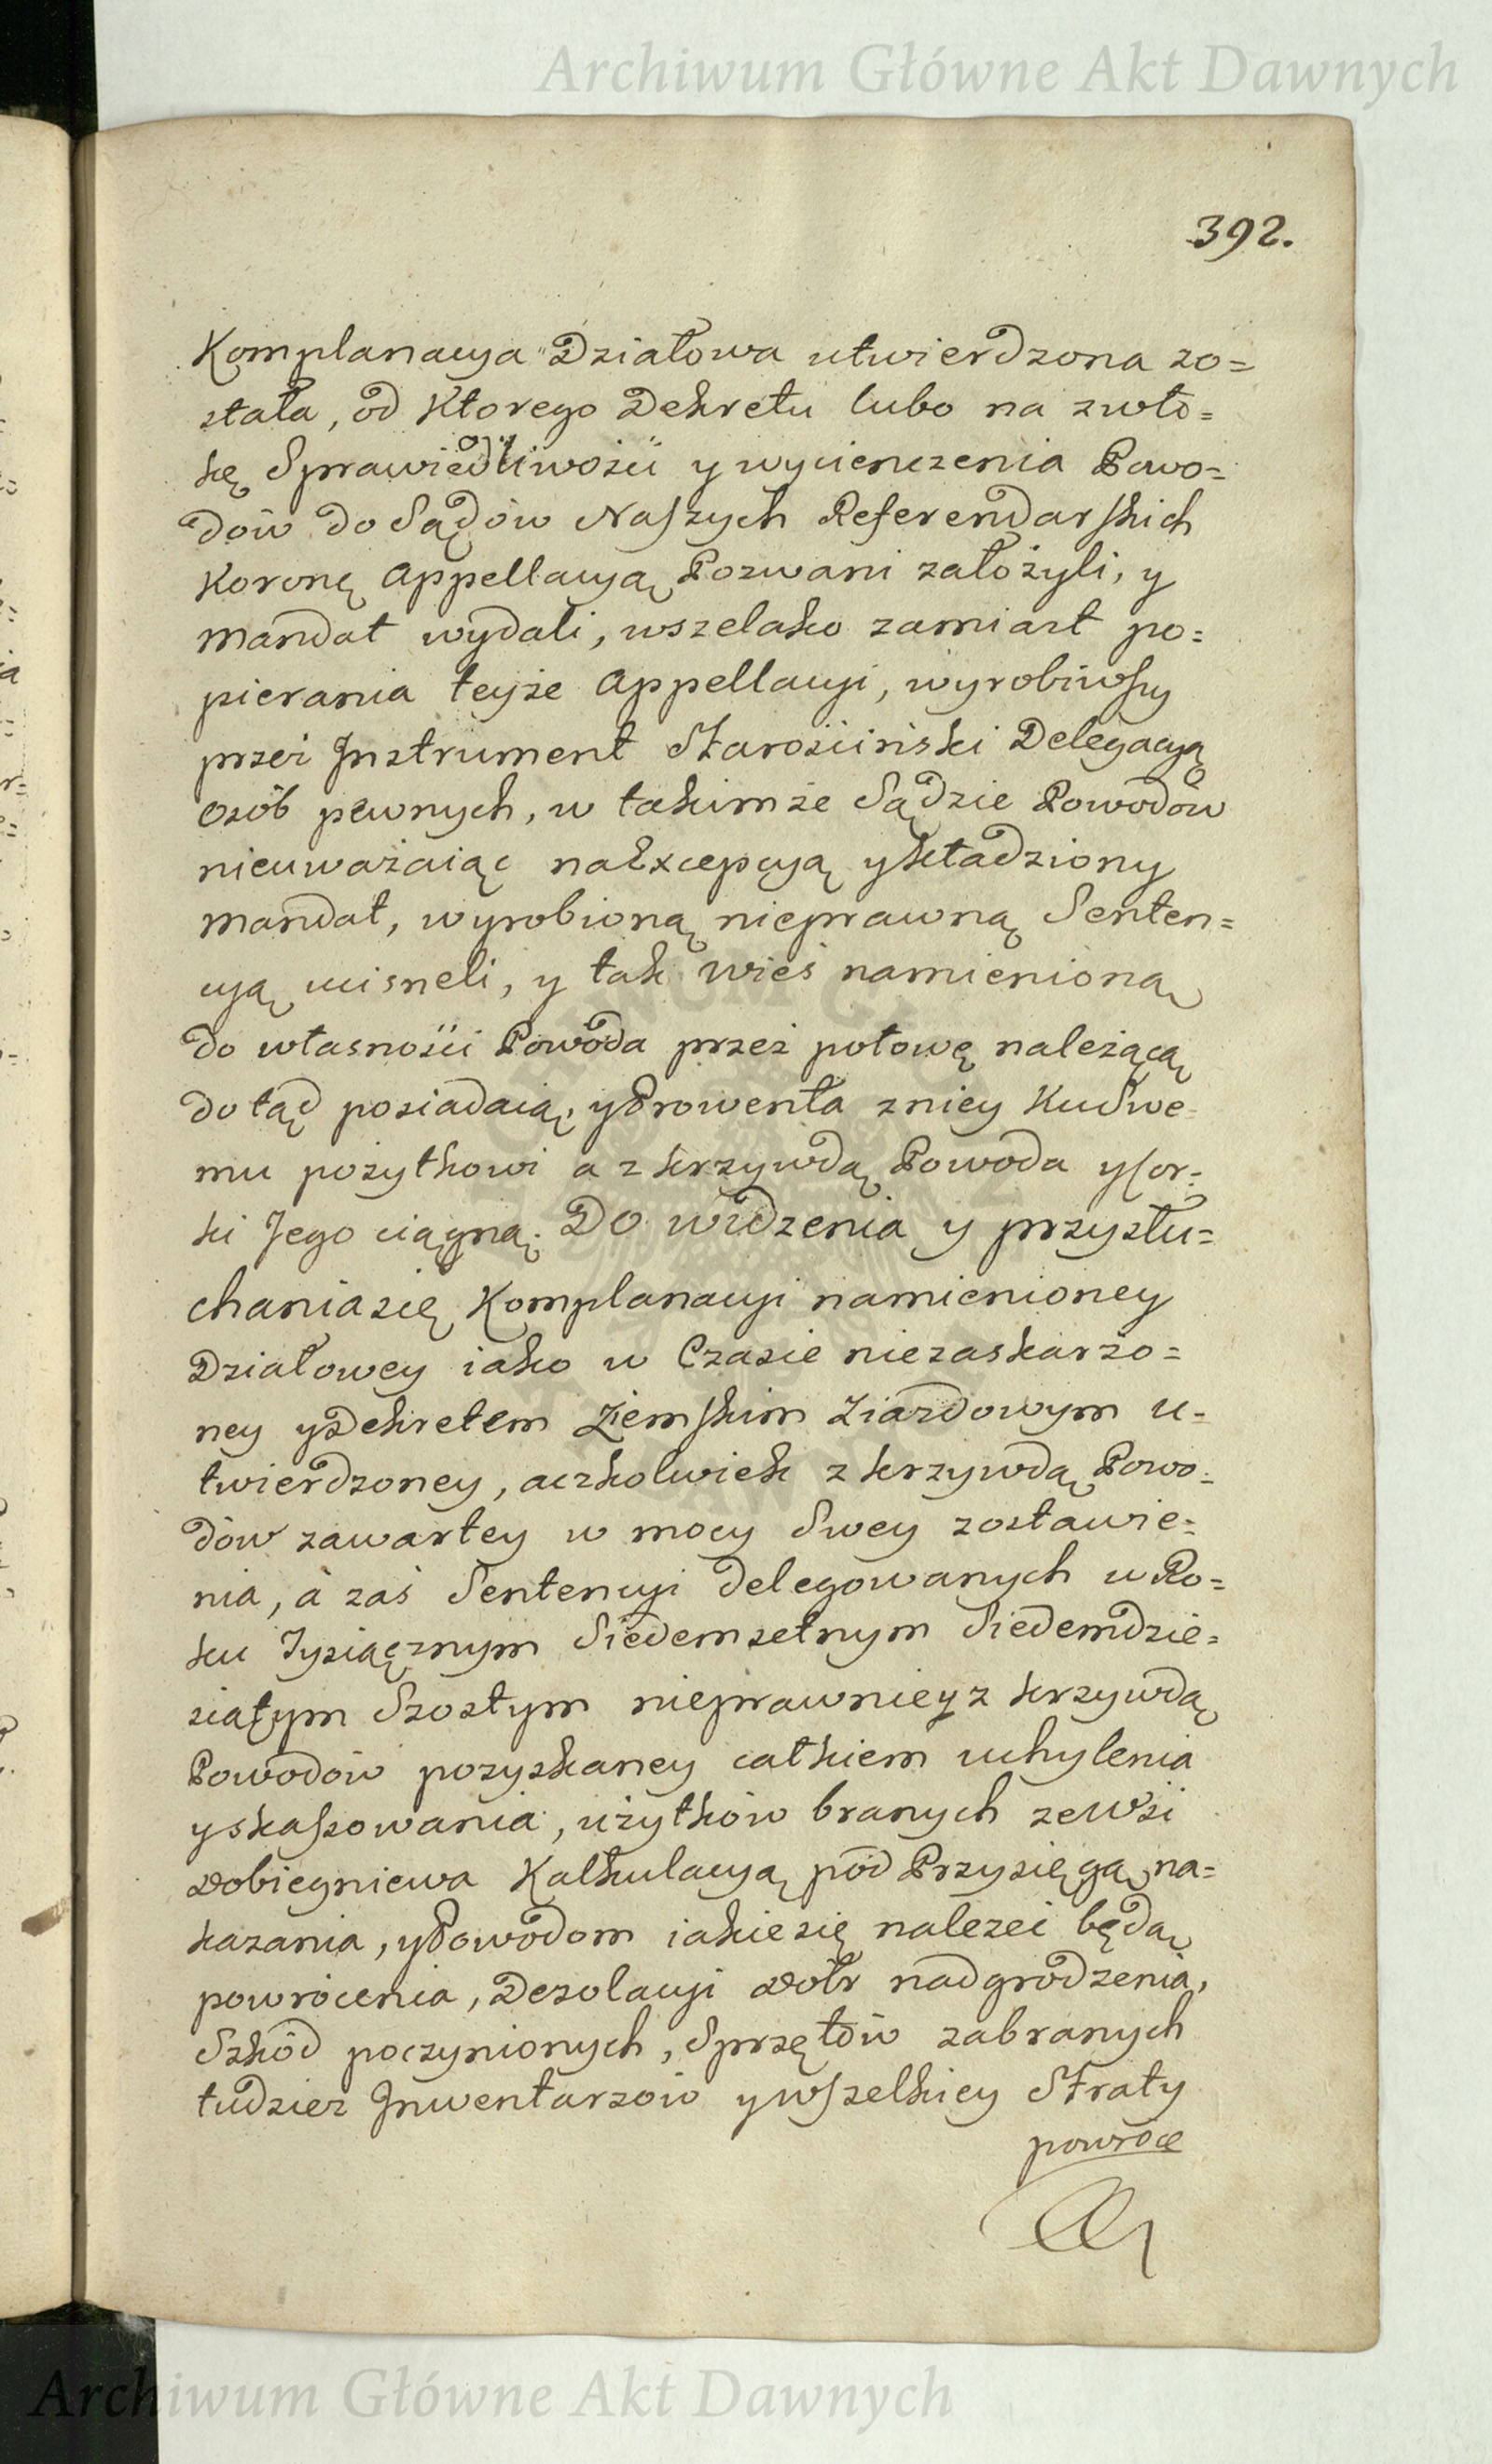 Archiwum Główne Akt Dawnych
392.
Komplanacya Działowa utwierdzona zo=
stała, od Ktorego Dekretu lubo na zwło=
kę Sprawiedliwości y wycienczenia Powo=
dów do Sądów Naszych Referendarskich
Koronę Appellacyą Pozwani założyli, y
Mandat wydali, wszelako zamiast po=
pierania teyże Appellacyi, wyrobiwszy
przez Instrument Starościński Delegacyą
osób pewnych, w takimże Sądzie Powodów
nieuważaiąc na Excepcyą y kładziony
Mandat, wyrobioną nieprawną Senten=
cyą ucisneli, y tak wieś namienioną
do własności Powoda przez połowę należącą
dotąd posiadaią, y Prowenta zniey Ku Swe=
mu pożytkowi a z krzywdą Powoda y Cor=
ki Jego ciągną. Do widzenia y przysłu=
chania się Komplanacyi namienioney
Działowey iako w Czasie niezaskarżo=
ney y Dekretem Ziemskim Ziazdowym u=
twierdzoney, aczkolwiek z krzywdą Powo=
dów zawartey w mocy Swey zostawie=
nia, a zaś Sentencyi delegowanych w Ro=
ku Tysiącznym Siedemsetnym Siedemdzie=
siątym Szostym nieprawniey z krzywdą
Powodów pozyskaney całkiem uchylenia
y skassowania, użytków branych ze Wsi
Dobiegniewa Kalkulacyą pod Przysięgą na=
kazania, y Powodom iakie się należeć będą
powrócenia, Dezolacyi Dóbr nadgrodzenia,
Szkód poczynionych, Sprzętów zabranych
tudzież Inwentarzow y wszelkiey Straty
powróce
Archiwum Główne Akt Dawnych